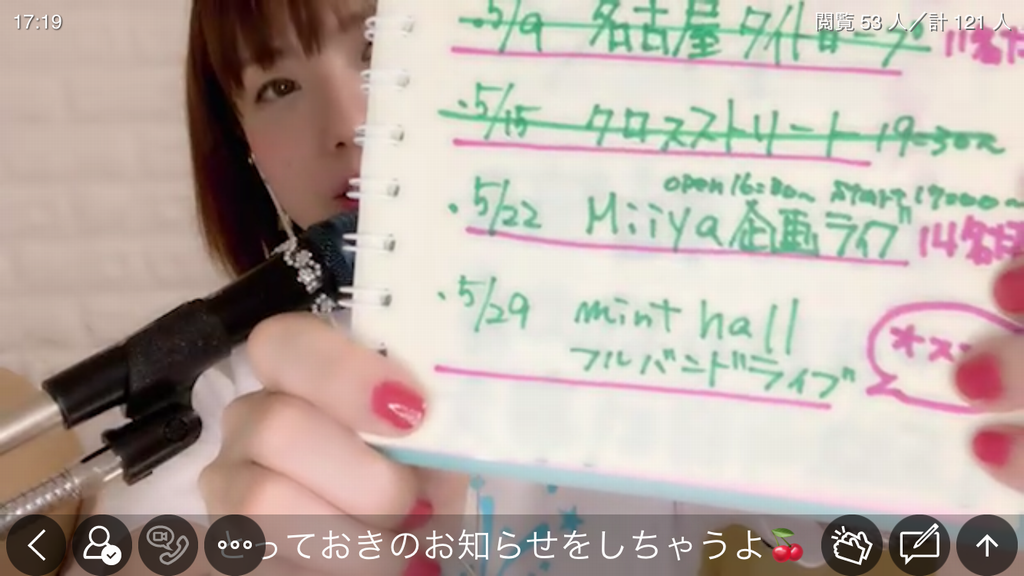 17:19
閲覧 53 人／計 121 人
・5/9 名古屋
・5/15 クロスストリート 19:30〜
open 16:30〜 start 17:00〜
・5/22 Miiya企画ライブ 14名
・5/29 mint hall
フルバンドライブ
っておきのお知らせをしちゃうよ🍒